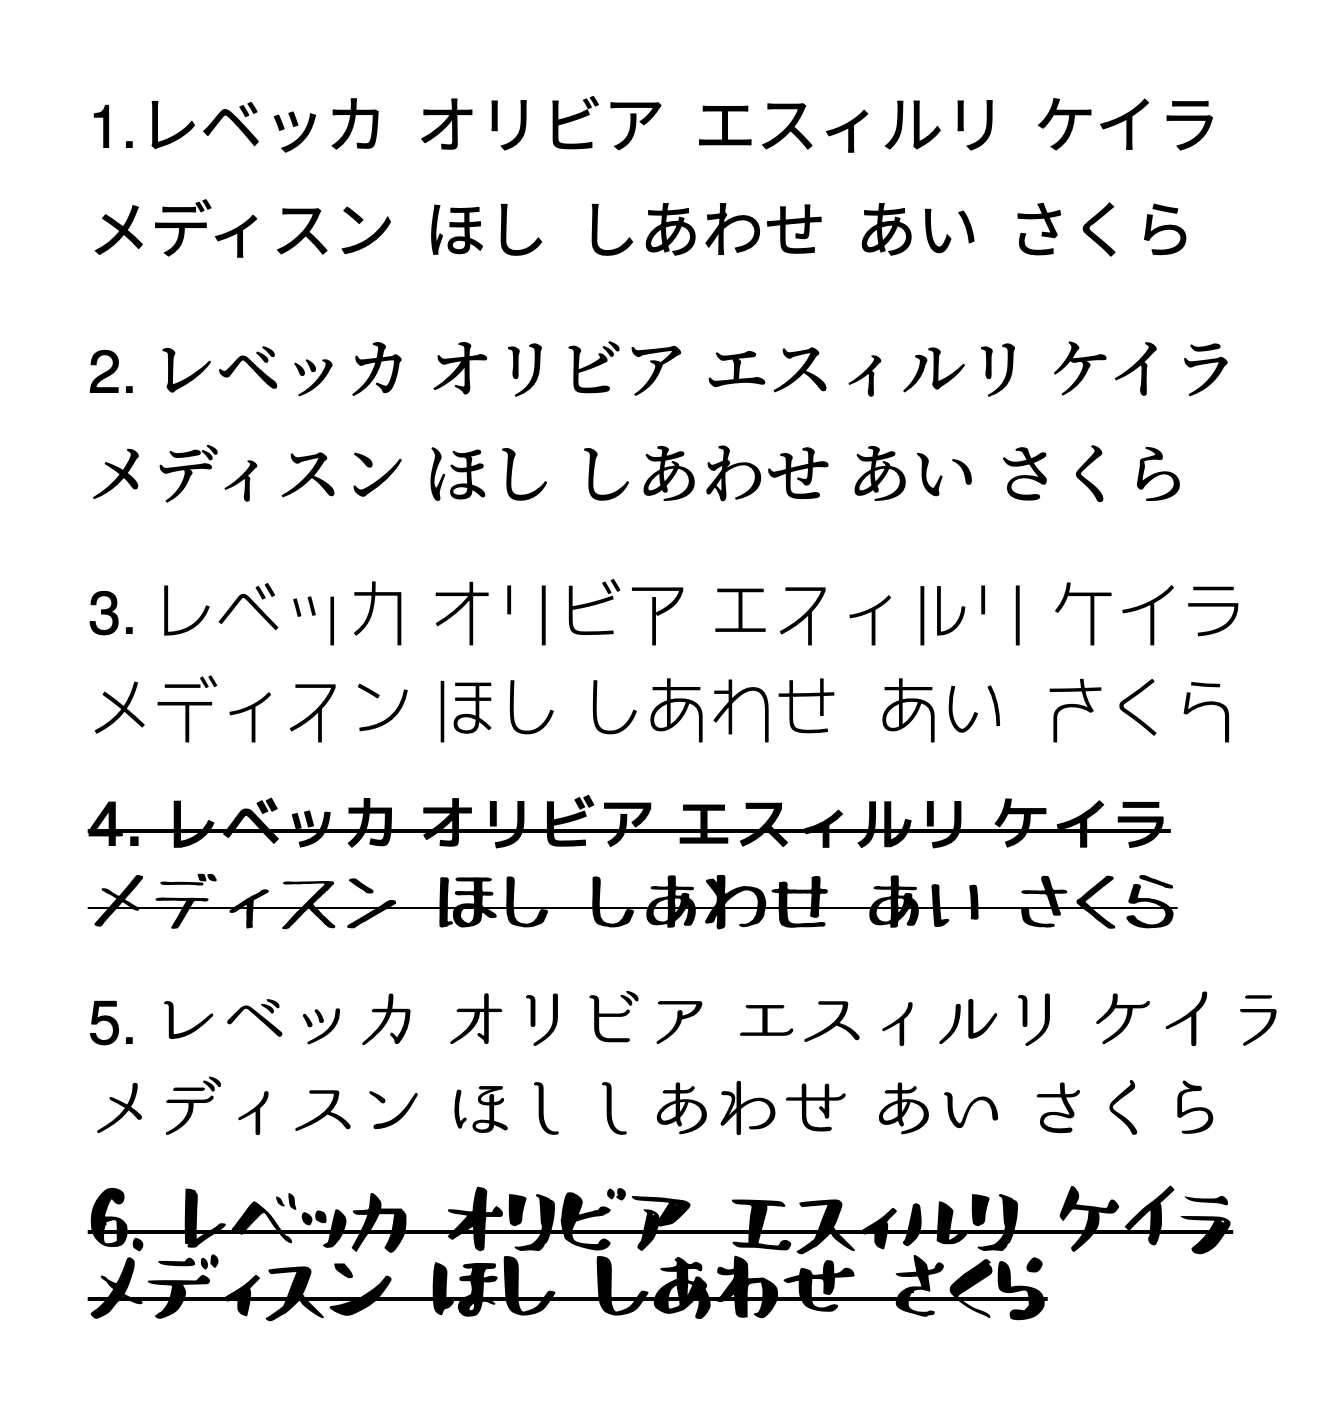 1.レベッカ オリビア エスィルリ ケイラ
メディスン ほし しあわせ あい さくら
2. レベッカ オリビア エスィルリ ケイラ
メディスン ほし しあわせ あい さくら
3. レベッカ オリビア エスィルリ ケイラ
メディスン ほし しあわせ あい さくら
4. レベッカ オリビア エスィルリ ケイラ
メディスン ほし しあわせ あい さくら
5. レベッカ オリビア エスィルリ ケイラ
メディスン ほし しあわせ あい さくら
6. レベッカ オリビア エスィルリ ケイラ
メディスン ほし しあわせ さくら